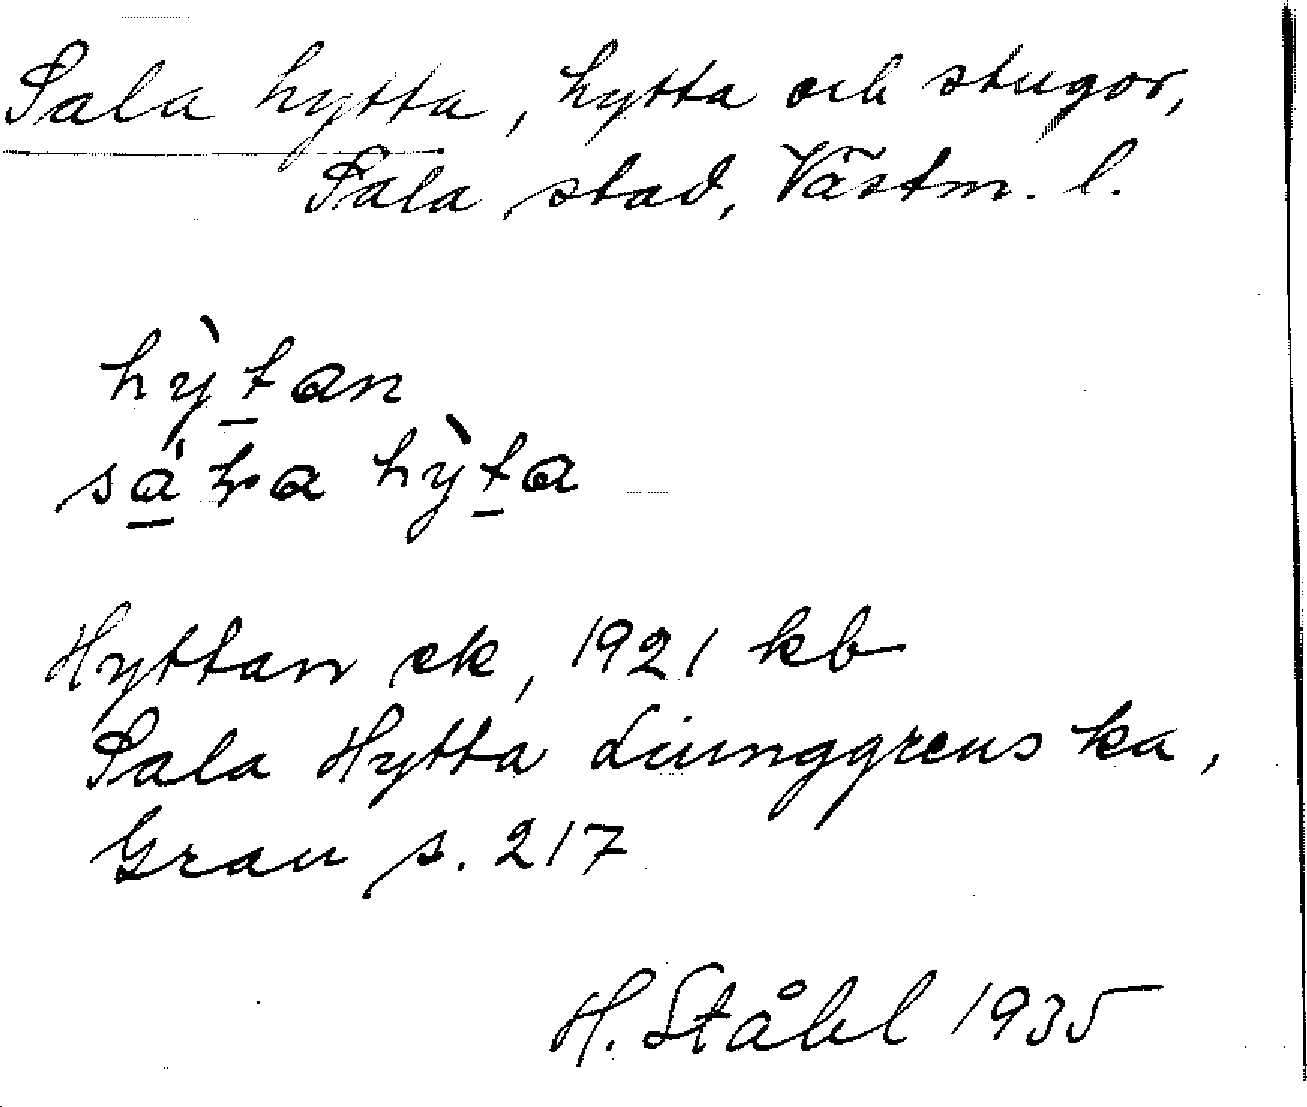 Sala hytta, hytta och stugor,
Sala stad, Västm. l.
hỳt̲an
sá̲ɫa hỳt̲a
Hyttan ek, 1921 kb
Sala Hytta Liunggrens ka,
Grau s. 217
H. Ståhl 1935